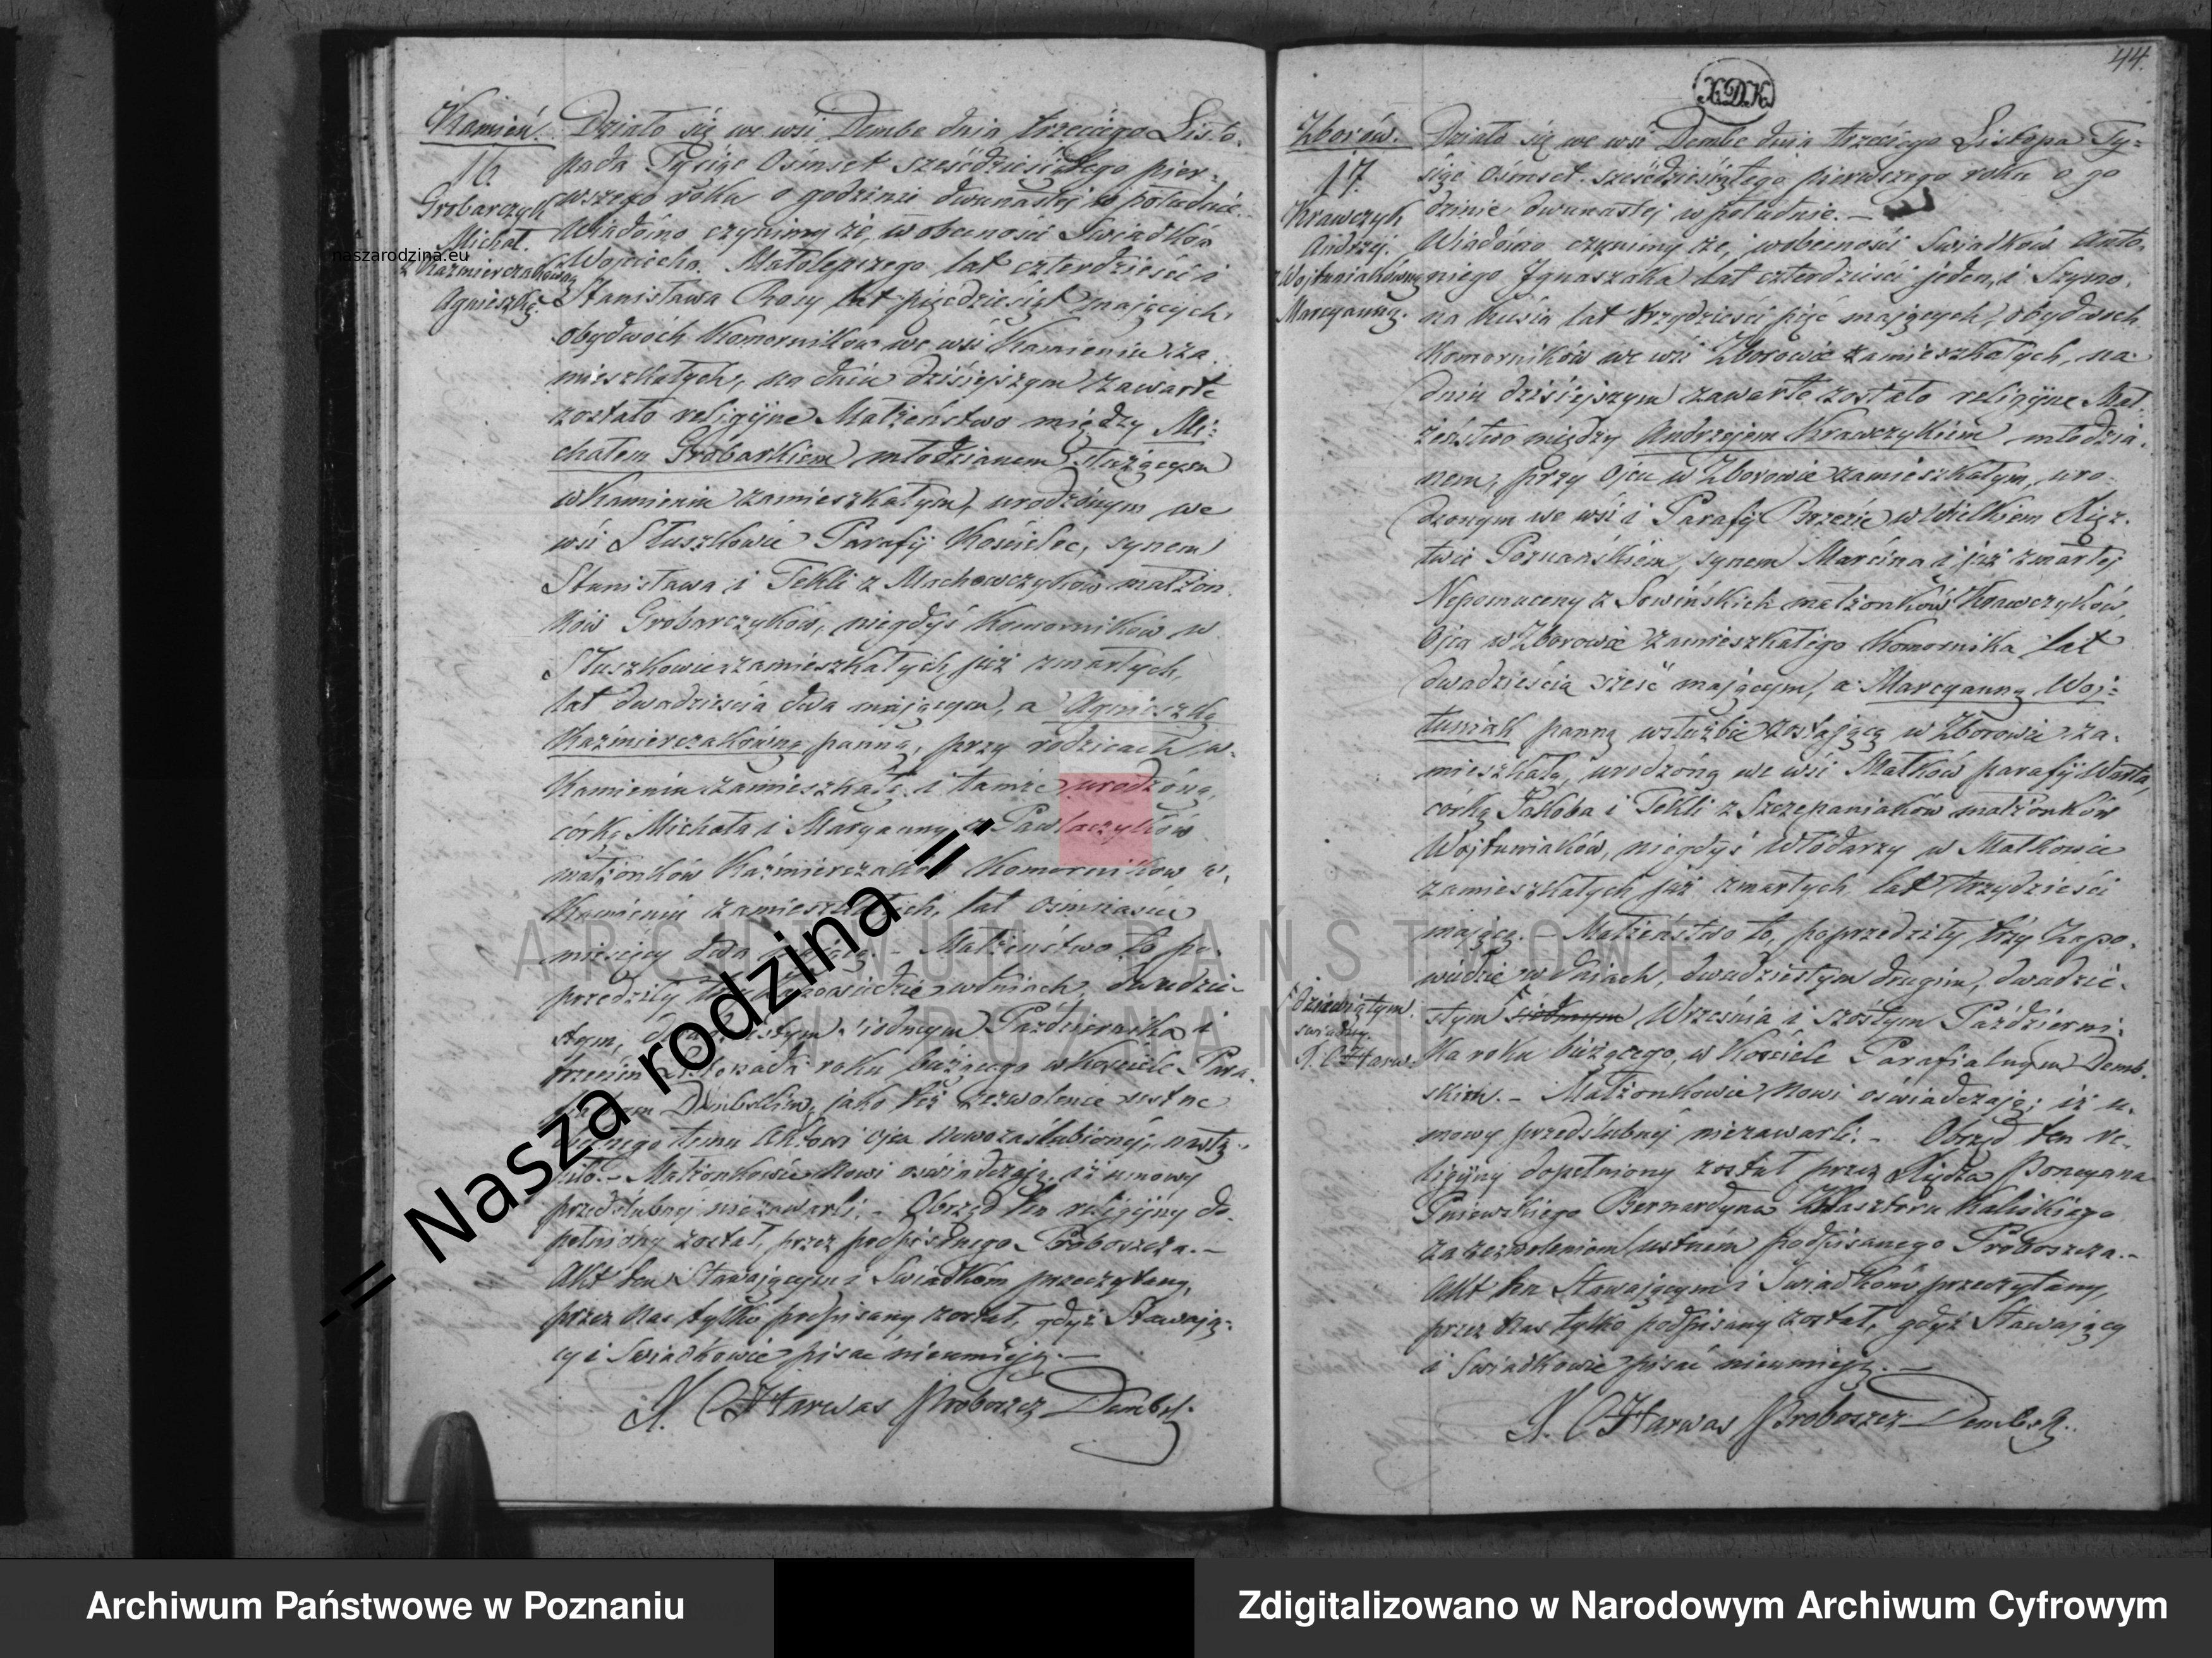 Kamień.
16.
Grobarczyk
Michał.
z Kazmierczakówną
Agnieszką.
Działo się we wsi Dembe dnia trzeciego Listo-
pada Tysiąc Ośmset sześćdziesiątego pier-
wszego roku o godzinie dwunastej w południe.
Wiadomo czynimy że, w obecności Swiadków
Wojciecha Matolepszego lat czterdzieści i
Stanisława Rosy lat pięćdziesiąt mających,
obydwóch Komorników we wsi Kamieniu za
mieszkałych, na dniu dzisiejszym zawarte
zostało religijne Małżeństwo między Mi-
chałem Grobarkiem młodzianem służącym
w Kamieniu zamieszkałym, urodzonym we
wsi Słuszkowie Parafij Kościelec, synem
Stanisława i Tekli z Mochowczyków małżon
ków Grobarczyków, niegdyś Komorników w
Słuszkowie zamieszkałych już zmarłych,
lat dwadzieścia dwa mającym, a Agnieszką
Kaźmierczakówną panną, przy rodzicach w
Kamieniu zamieszkałą i tamże urodzoną,
córką Michała i Maryanny z Pawlaczyków
małżonków Kaźmierczaków Komorników w
Kamieniu zamieszkałych, lat Ośmnaście
miesięcy dwa mającą. - Małżeństwo to po-
przedziły trzy Zapowiedzie w dniach, dwudzie-
stym, dwudziestym siódmym Października i
trzecim Listopada roku bieżącego w Kościele Para-
fialnym Dembskim, jako też zezwolenie ustne
obecnego temu Aktowi ojca Nowozaślubionej, nastą-
piło. - Małżonkowie Nowi oświadczają, iż umowy
przedślubnej niezawarli. - Obrzęd ten religijny do-
pełniony został, przez podpisanego Proboszcza. -
Akt ten Stawającym i Swiadkom przeczytany,
przez Nas tylko podpisany został, gdyż Stawają-
cy i Swiadkowie pisać nieumieją. -
X. C Harwas Proboszcz Dembsk.
44.
XDK
Zborów.
17.
Krawczyk
Andrzej.
z Wojtuniakówną
Marcyanną.
Działo się we wsi Dembe dnia trzeciego Listopa Ty-
siąc Ośmset sześćdziesiątego pierwszego roku o go
dzinie dwunastej w południe. -
Wiadomo czynimy że, w obecności Swiadków Anto-
niego Ignaszaka lat czterdzieści jeden, i Szymo-
na Kusia lat trzydzieści pięć mających, obydwóch
Komorników we wsi Zborowie zamieszkałych, na
dniu dzisiejszym zawarte zostało religijne Mał-
żeństwo między Andrzejem Krawczykiem młodzia-
nem, przy Ojcu w Zborowie zamieszkałym, uro-
dzonym we wsi i Parafij Brzezie w Wielkiem Xięz-
twie Poznańskiem, synem Marcina i już zmarłej
Nepomuceny z Sowińskich małżonków Krawczyków,
Ojca w Zborowie zamieszkałego Komornika lat
dwadzieścia sześć mającym, a Marcyanną Woj-
tuniak panną w służbie zostającą w Zborowie za-
mieszkałą, urodzoną we wsi Małków parafij Warta,
córką Jakóba i Tekli z Szczepaniaków małżonków
Wojtuniaków, niegdyś Włódarzy w Małkowie
zamieszkałych już zmarłych, lat trzydzieści
mającą. - Małżeństwo to, poprzedziły trzy Zapo-
wiedzie w dniach, dwudziestym drugim, dwudzie-
stym siódmym Września i szóstym Październi-
ka roku bieżącego, w Kościele Parafialnym Demb-
skim. - Małżonkowie Nowi oświadczają; iż u-
mowy przedślubnej niezawarli. - Obrzęd ten re-
ligijny dopełniony został przez Xiędza Poncyana
Pniewskiego Bernardyna Klasztoru Kaliskiego
za zezwoleniem ustnem podpisanego Proboszcza. -
Akt ten Stawającym i Swiadkom przeczytany,
przez Nas tylko podpisany został, gdyż Stawający
i Swiadkowie pisać nieumieją. -
X. C Harwas Proboszcz Dembsk.
dziewiątym.
X. C Harw.
naszarodzina.eu
-= Nasza rodzina =-
ARCHIWUM PAŃSTWOWE
W POZNANIU
Archiwum Państwowe w Poznaniu
Zdigitalizowano w Narodowym Archiwum Cyfrowym